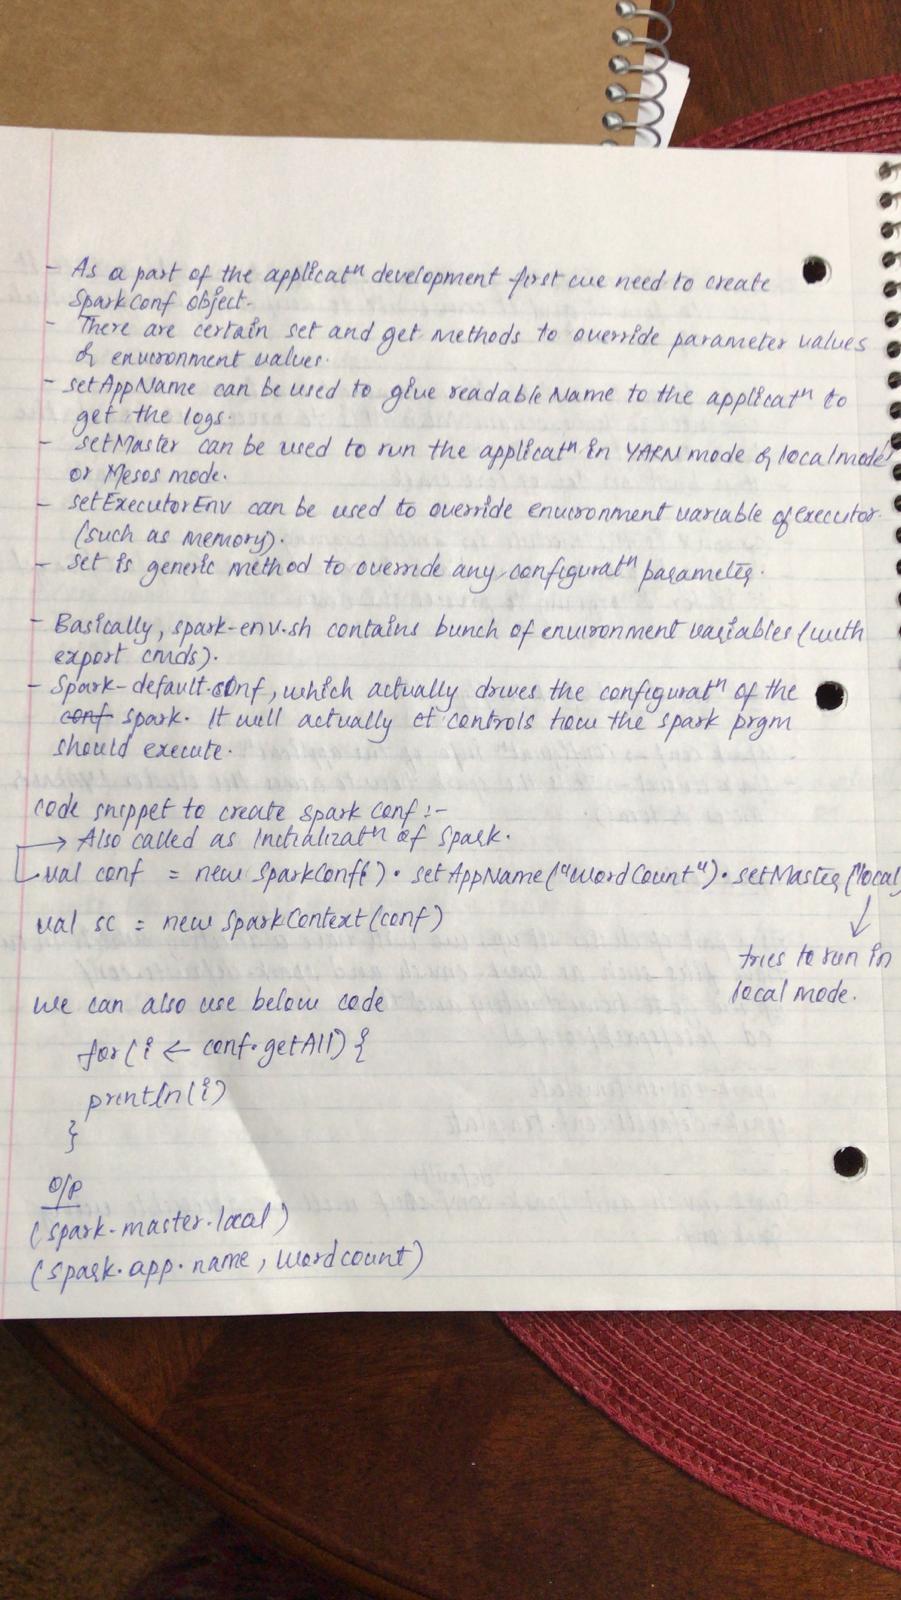 - As a part of the applicatⁿ development first we need to create
SparkConf object.
- There are certain set and get methods to override parameter values
& environment values.
- setAppName can be used to give readable Name to the applicatⁿ to
get the logs.
- setMaster can be used to run the applicatⁿ in YARN mode & local mode
or Mesos mode.
- setExecutorEnv can be used to override environment variable of executor
(such as memory).
- set is generic method to override any configuratⁿ parameter.
- Basically, spark-env.sh contains bunch of environment variables (with
export cmds).
- Spark-default.conf, which actually drives the configuratⁿ of the
conf spark. It will actually ct controls how the spark prgm
should execute.
code snippet to create spark conf :-
→ Also called as Initializatⁿ of Spark.
val conf = new SparkConf( ). setAppName("WordCount"). setMaster("local
val sc = new SparkContext(conf)
tries to run in
local mode.
we can also use below code
for(i ← conf.getAll) {
println(i)
}
O/P
(spark.master.local)
(spark.app.name, wordcount)